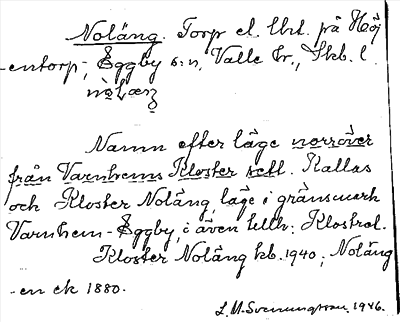 Noläng. Torp el. lht. på Höj
-entorp, Eggby s:n, Valle hr., Skb. l.
Namn efter läge norröver
från Varnhems Kloster sett. Kallas
och Kloster Noläng läge i gränsmark
Varnhem-Eggby, i även lllh: Klostrel.
Kloster Noläng kb. 1940; Noläng
-en ek 1880.
L.M. Svenungsson. 1946.